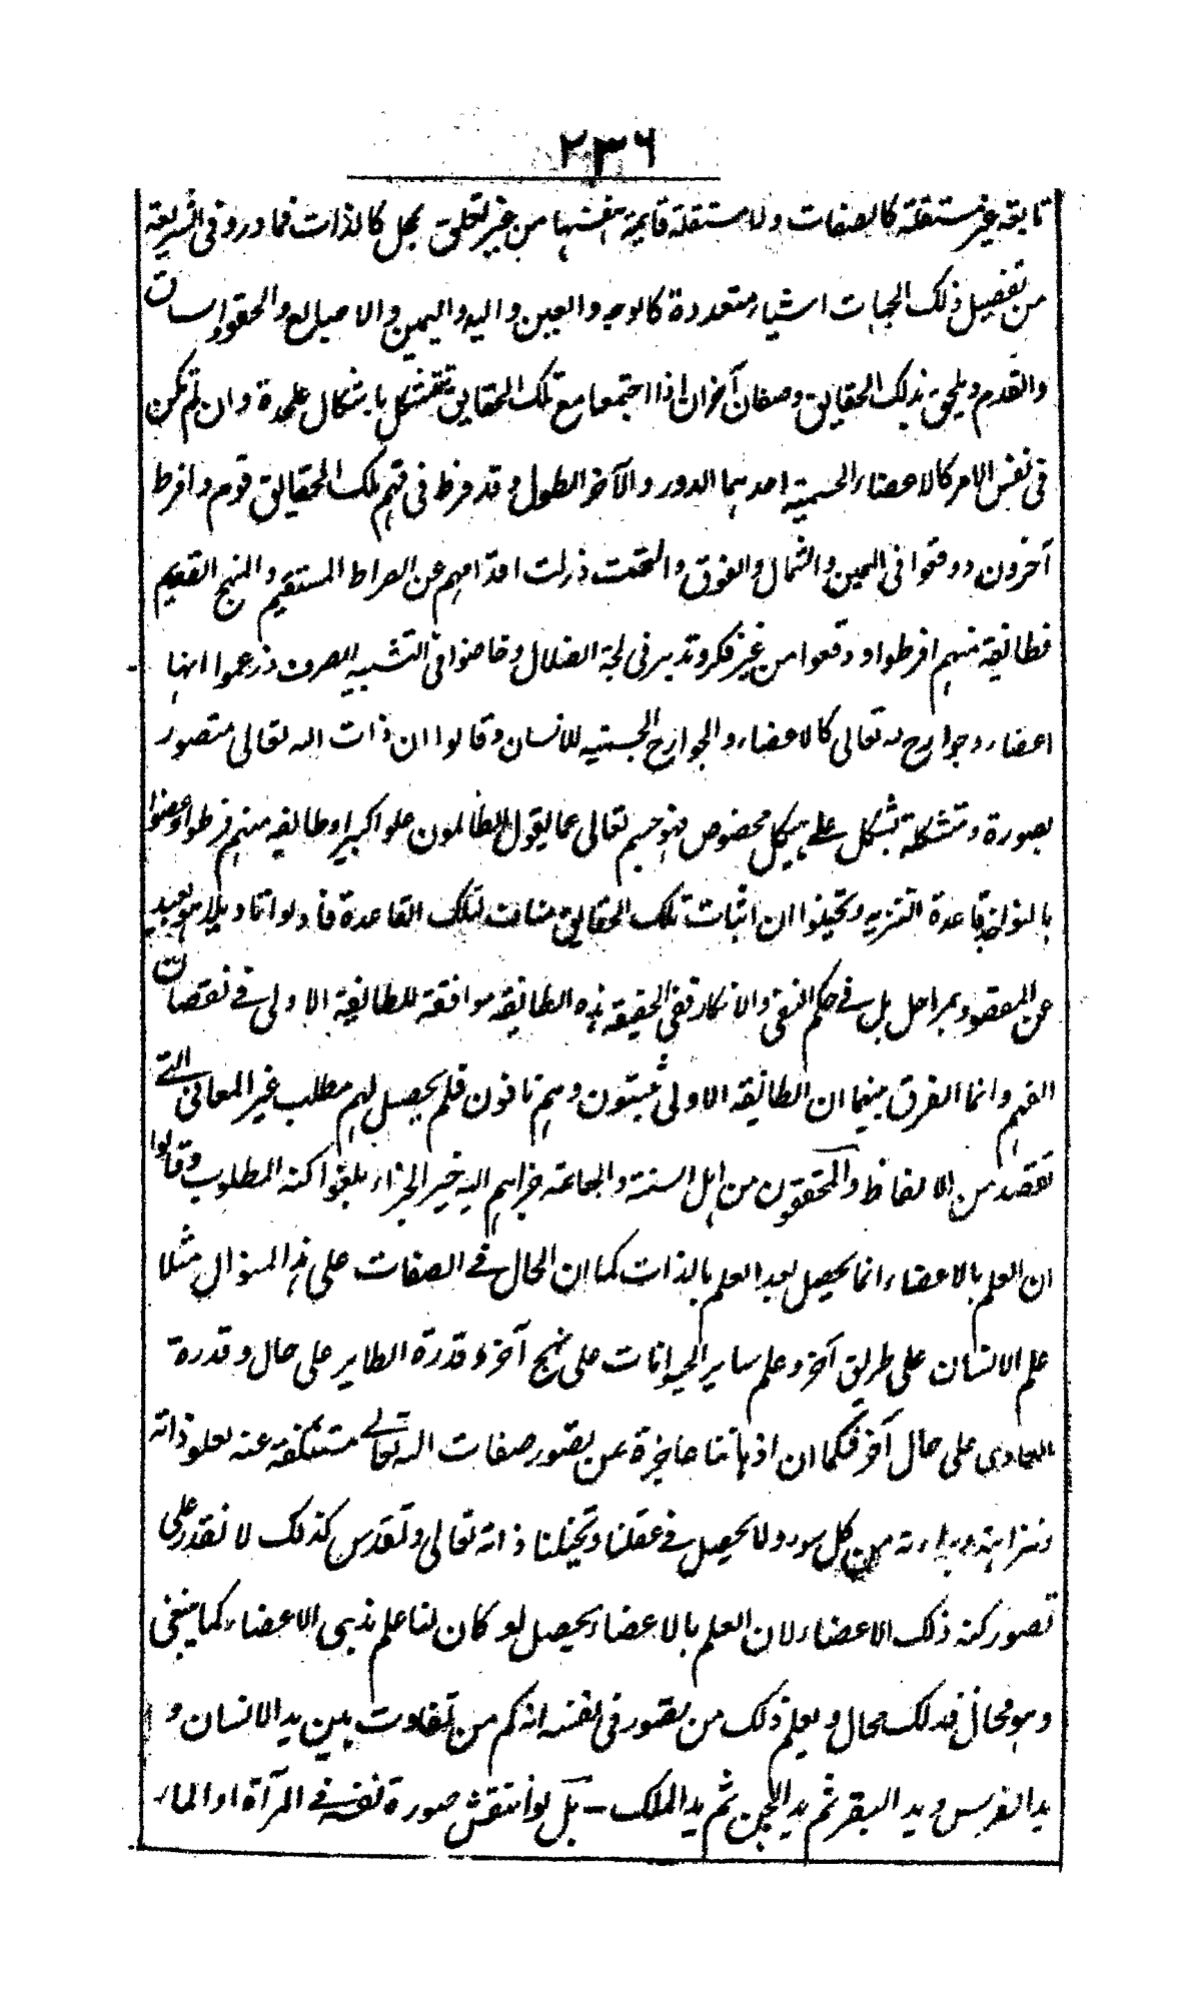 ٢٣٦
تابعة غير مستقلة كالصفات ولا مستقلة قايمة بنفسها من غير تعلق بمحل كالذات فما ورد في الشريعة
من تفصيل ذلك الجهات اشياء متعددة كالوجه والعين واليد واليمين والاصابع والحقو والساق
والقدم ويلحق بذلك الحقايق وصفان آخران اذا اجتمعا مع تلك الحقايق تتشكل باشكال علىحدة وان لم تكن
في نفس الامر كالاعضاء الجسمية احدهما الدور والآخر الطول وقد فرط في فهم تلك الحقايق قوم وافرط
آخرون ووقعوا في اليمين والشمال والفوق والتحت وزلت اقدامهم عن الصراط المستقيم والمنهج القويم
فطائفة منهم افرطوا ووقعوا من غير فكر وتدبر في لجة الضلال وخاضوا في التشبيه الصرف وزعموا انها
اعضاء وجوارح له تعالى كالاعضاء والجوارح الجسمية للانسان وقالوا ان ذات الله تعالى متصور
بصورة ومتشكلة بشكل على هيكل مخصوص فهو جسم تعالى عما يقول الظالمون علوا كبيرا وطايفة منهم فرطوا وعضوا
بالنواجذ قاعدة التنزيه وتخيلوا ان اثبات تلك الحقايق مناف لتلك القاعدة فأولوا تأويلا هو بعيد
عن المقصود بمراحل بل في حكم النفي والانكار ففي الحقيقة هذه الطائفة موافقة للطائفة الاولى في نقصان
الفهم وانما الفرق بينهما ان الطائفة الاولى مثبتون وهم نافون فلم يحصل لهم مطلب غير المعاني التي
تقصد من الالفاظ والمحققون من اهل السنة والجماعة جزاهم الله خير الجزاء بلغوا كنه المطلوب وقالوا
ان العلم بالاعضاء انما يحصل بعد العلم بالذات كما ان الحال في الصفات على هذا المنوال مثلا
علم الانسان على طريق آخر وعلم ساير الحيوانات على نهج آخر وقدرة الطاير على حال وقدرة
على حال آخر فكما ان اذهاننا عاجزة عن تصور صفات الله تعالى مستنكفة عنه لعلو ذاته
ونزاهته وبراءته من كل سوء ولا يحصل في عقلنا وتخيلنا ذاته تعالى وتقدس كذلك لا نقدر على
تصور كنه ذلك الاعضاء لان العلم بالاعضاء يحصل لو كان لنا علم بذي الاعضاء كما ينبغي
وهو محال فذلك محال ويعلم ذلك من تصور في نفسه انه كم من تفاوت بين يد الانسان و
يد الفرس ويد البقر ثم يد الجن ثم يد الملك - بل لو انتقش صورة نفسه في المرآة او الماء